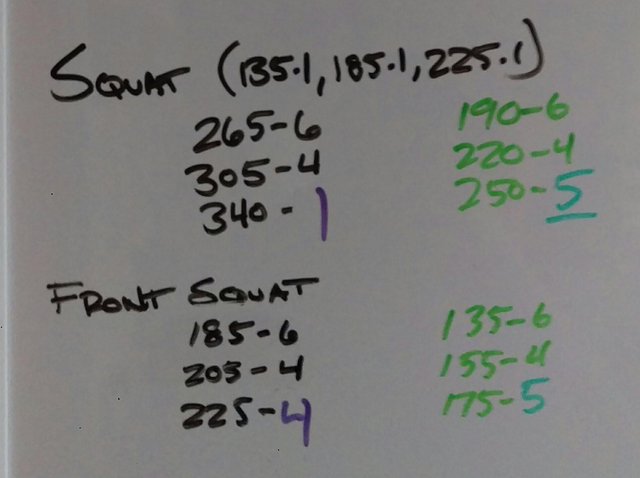 SQUAT (135.1, 185.1, 225.1)
265-6 190-6
305-4 220-4
340-1 250-5
FRONT SQUAT
185-6 135-6
205-4 155-4
225-4 175-5